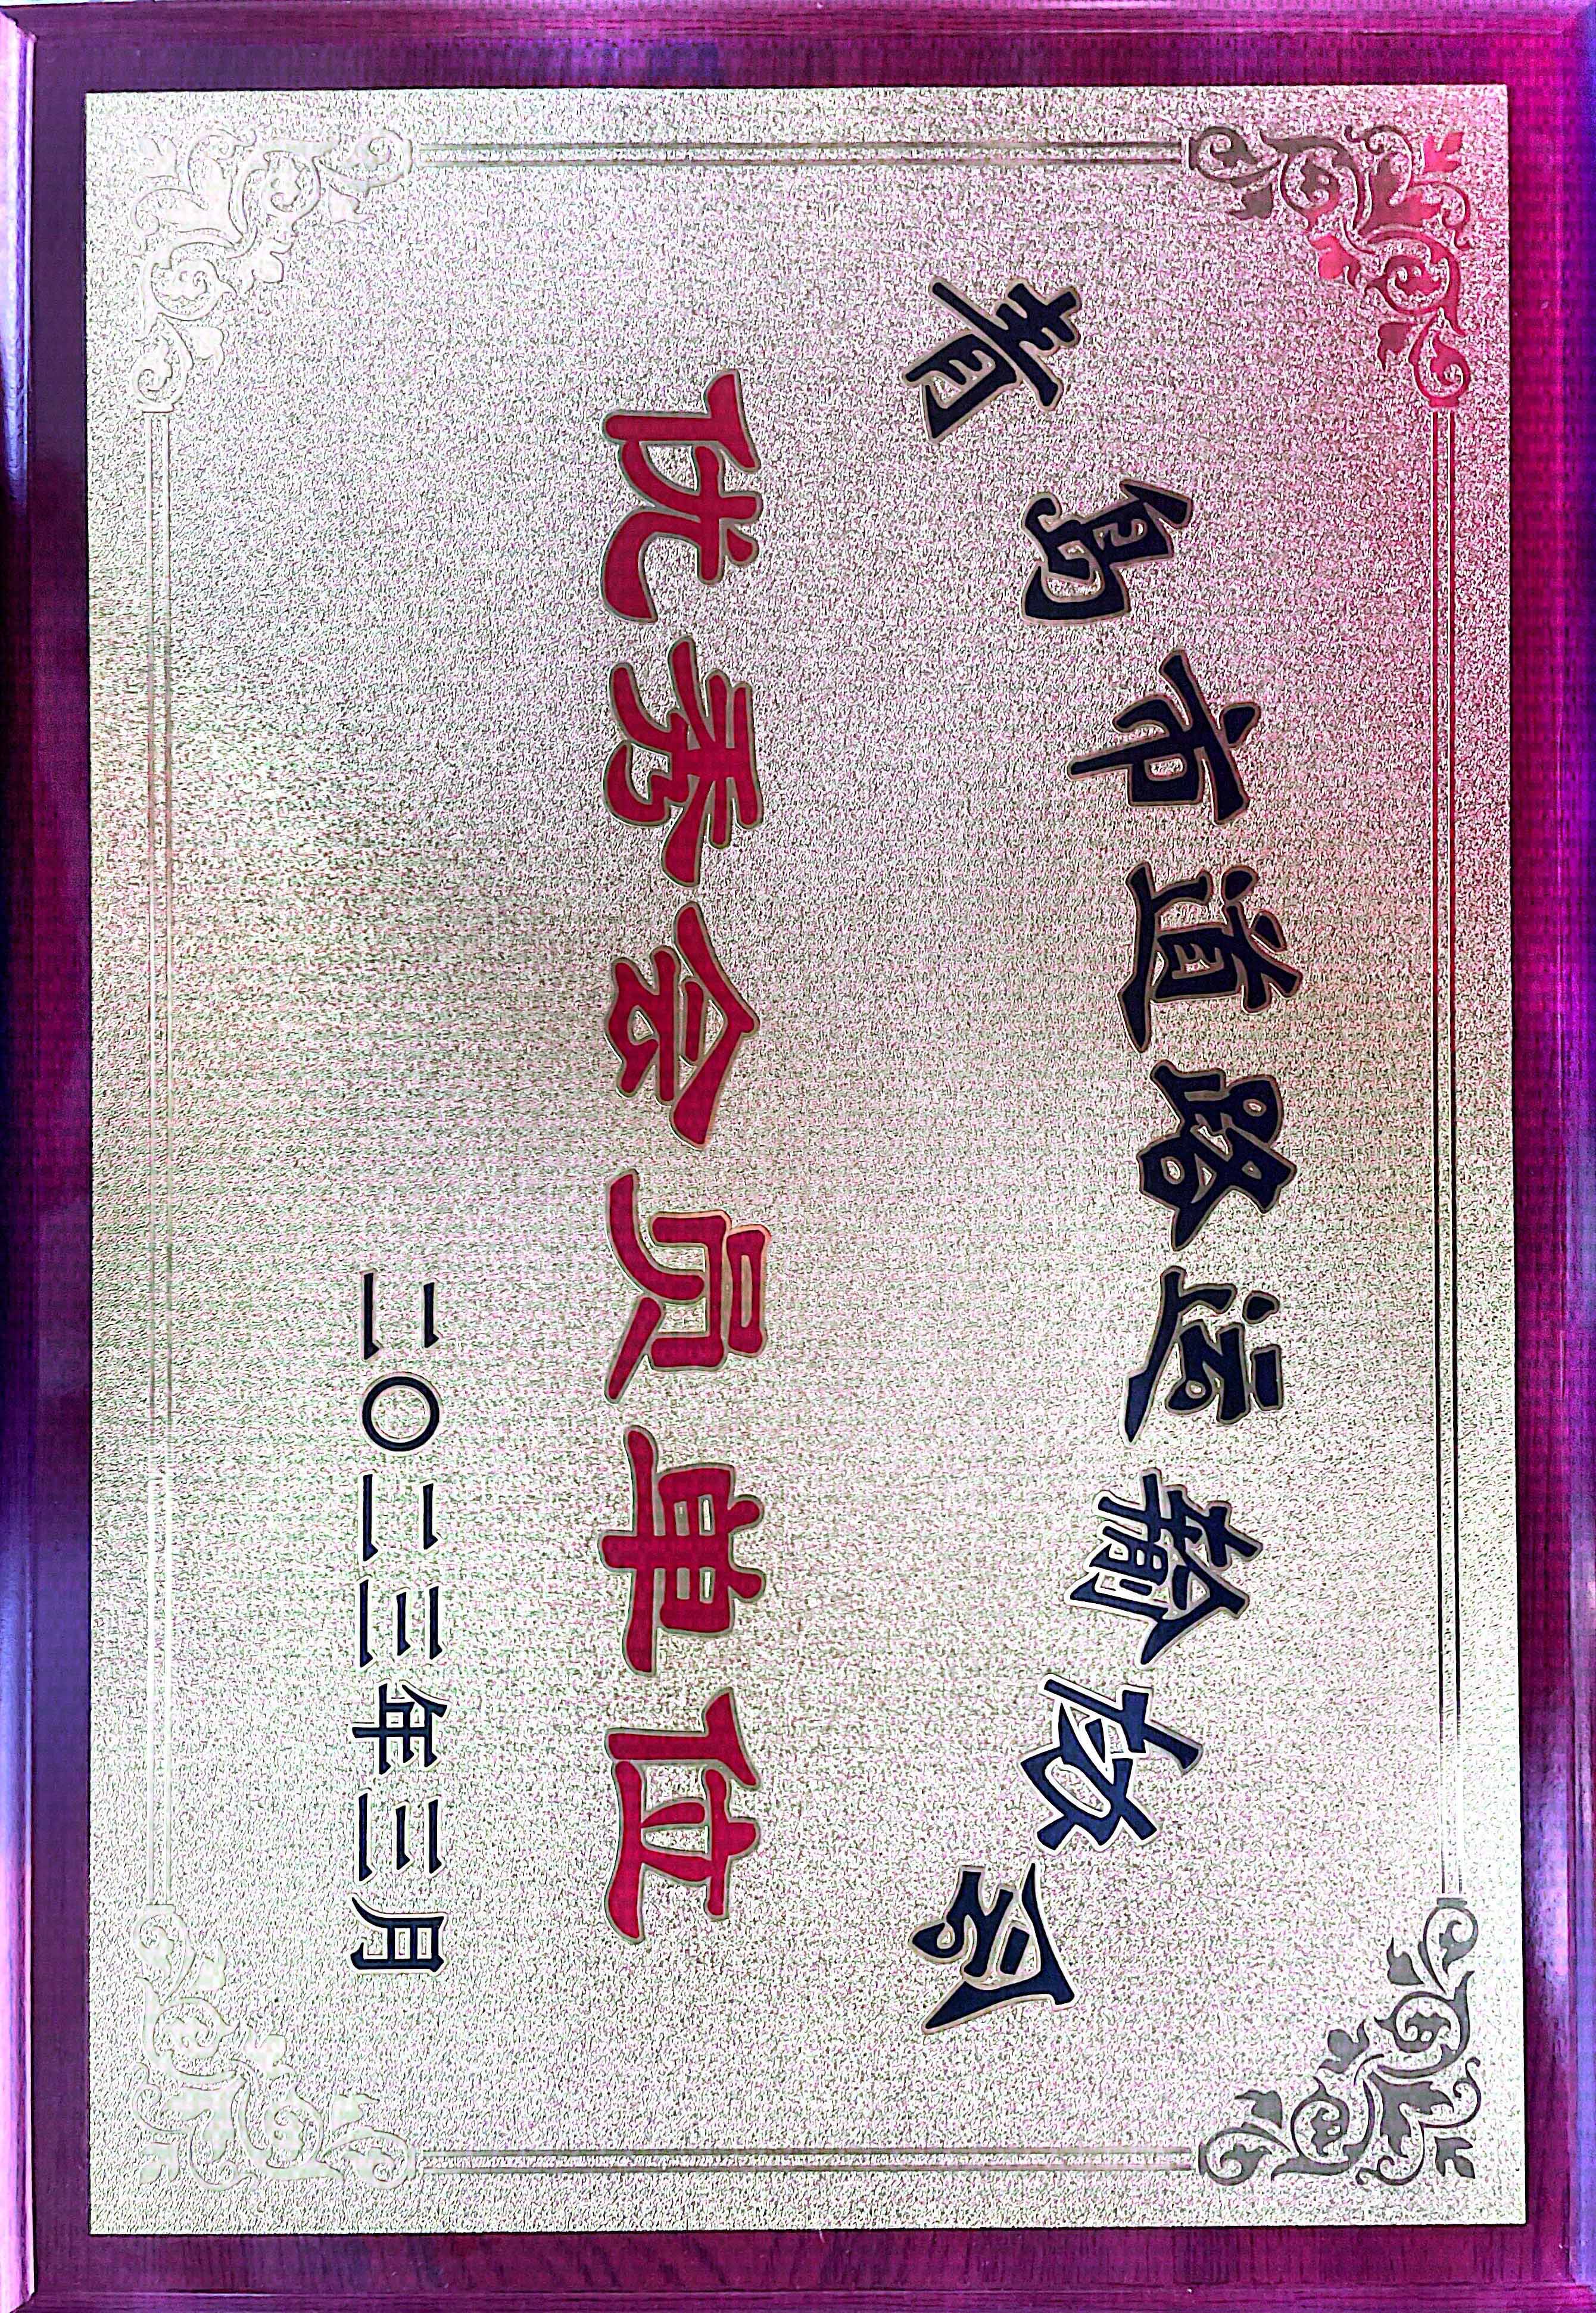 青岛市道路运输协会
优秀会员单位
二〇二三年三月